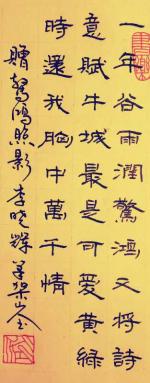 一年谷雨潤驚鴻又將詩
意賦牛城最是可愛黃綠
時還我胸中萬千情
贈驚鴻照影 李曉輝